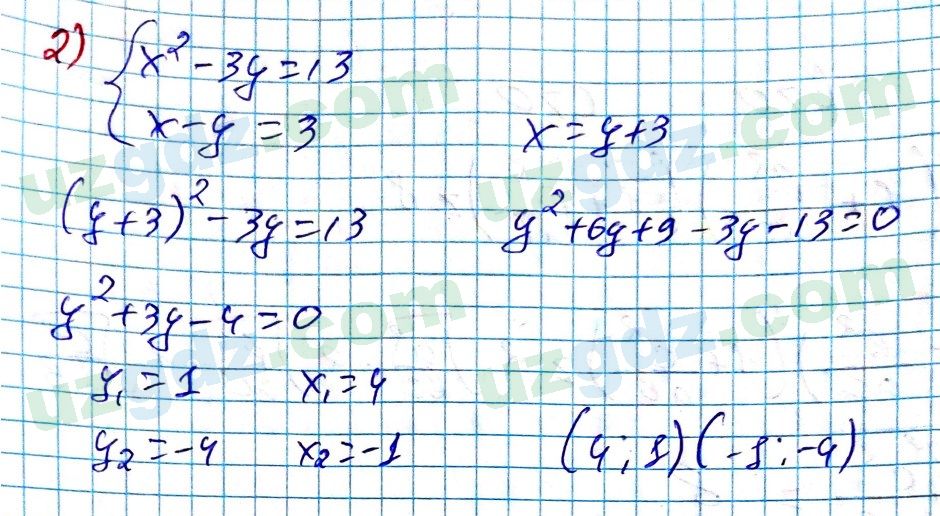 2) { x² - 3y = 13
x - y = 3    x = y + 3
(y + 3)² - 3y = 13    y² + 6y + 9 - 3y - 13 = 0
y² + 3y - 4 = 0
y₁ = 1    x₁ = 4
y₂ = -4    x₂ = -1    (4; 1) (-1; -4)
uzgdz.com
uzgdz.com
uzgdz.com
uzgdz.com